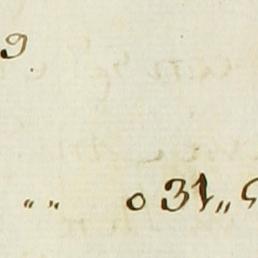 9
„ „ 0 31 „